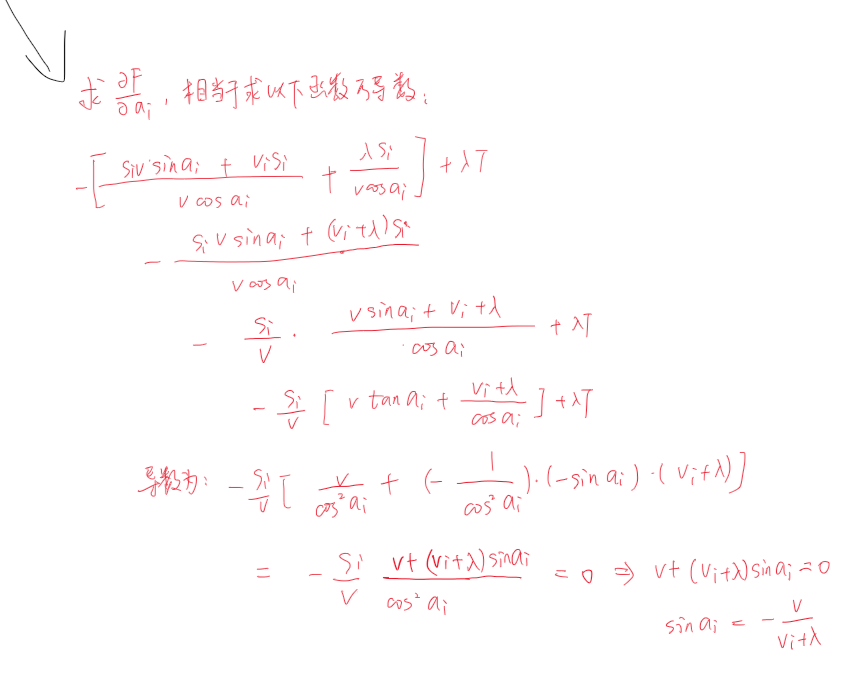 求 ∂F/∂a_i , 相当于求以下函数的导数:
-[ (s_i v·sin a_i + v_i s_i)/(v cos a_i) + (λ s_i)/(v cos a_i) ] + λT
- (s_i v sin a_i + (v_i+λ)s_i)/(v cos a_i)
- s_i/v · (v sin a_i + v_i + λ)/(cos a_i) + λT
- s_i/v [ v tan a_i + (v_i+λ)/(cos a_i) ] + λT
导数为: - s_i/v [ v/(cos² a_i) + (- 1/(cos² a_i))·(-sin a_i)·( v_i+λ)]
= - s_i/v (v+(v_i+λ)sin a_i)/(cos² a_i) = 0 ⇒ v+(v_i+λ)sin a_i = 0
sin a_i = - v/(v_i+λ)